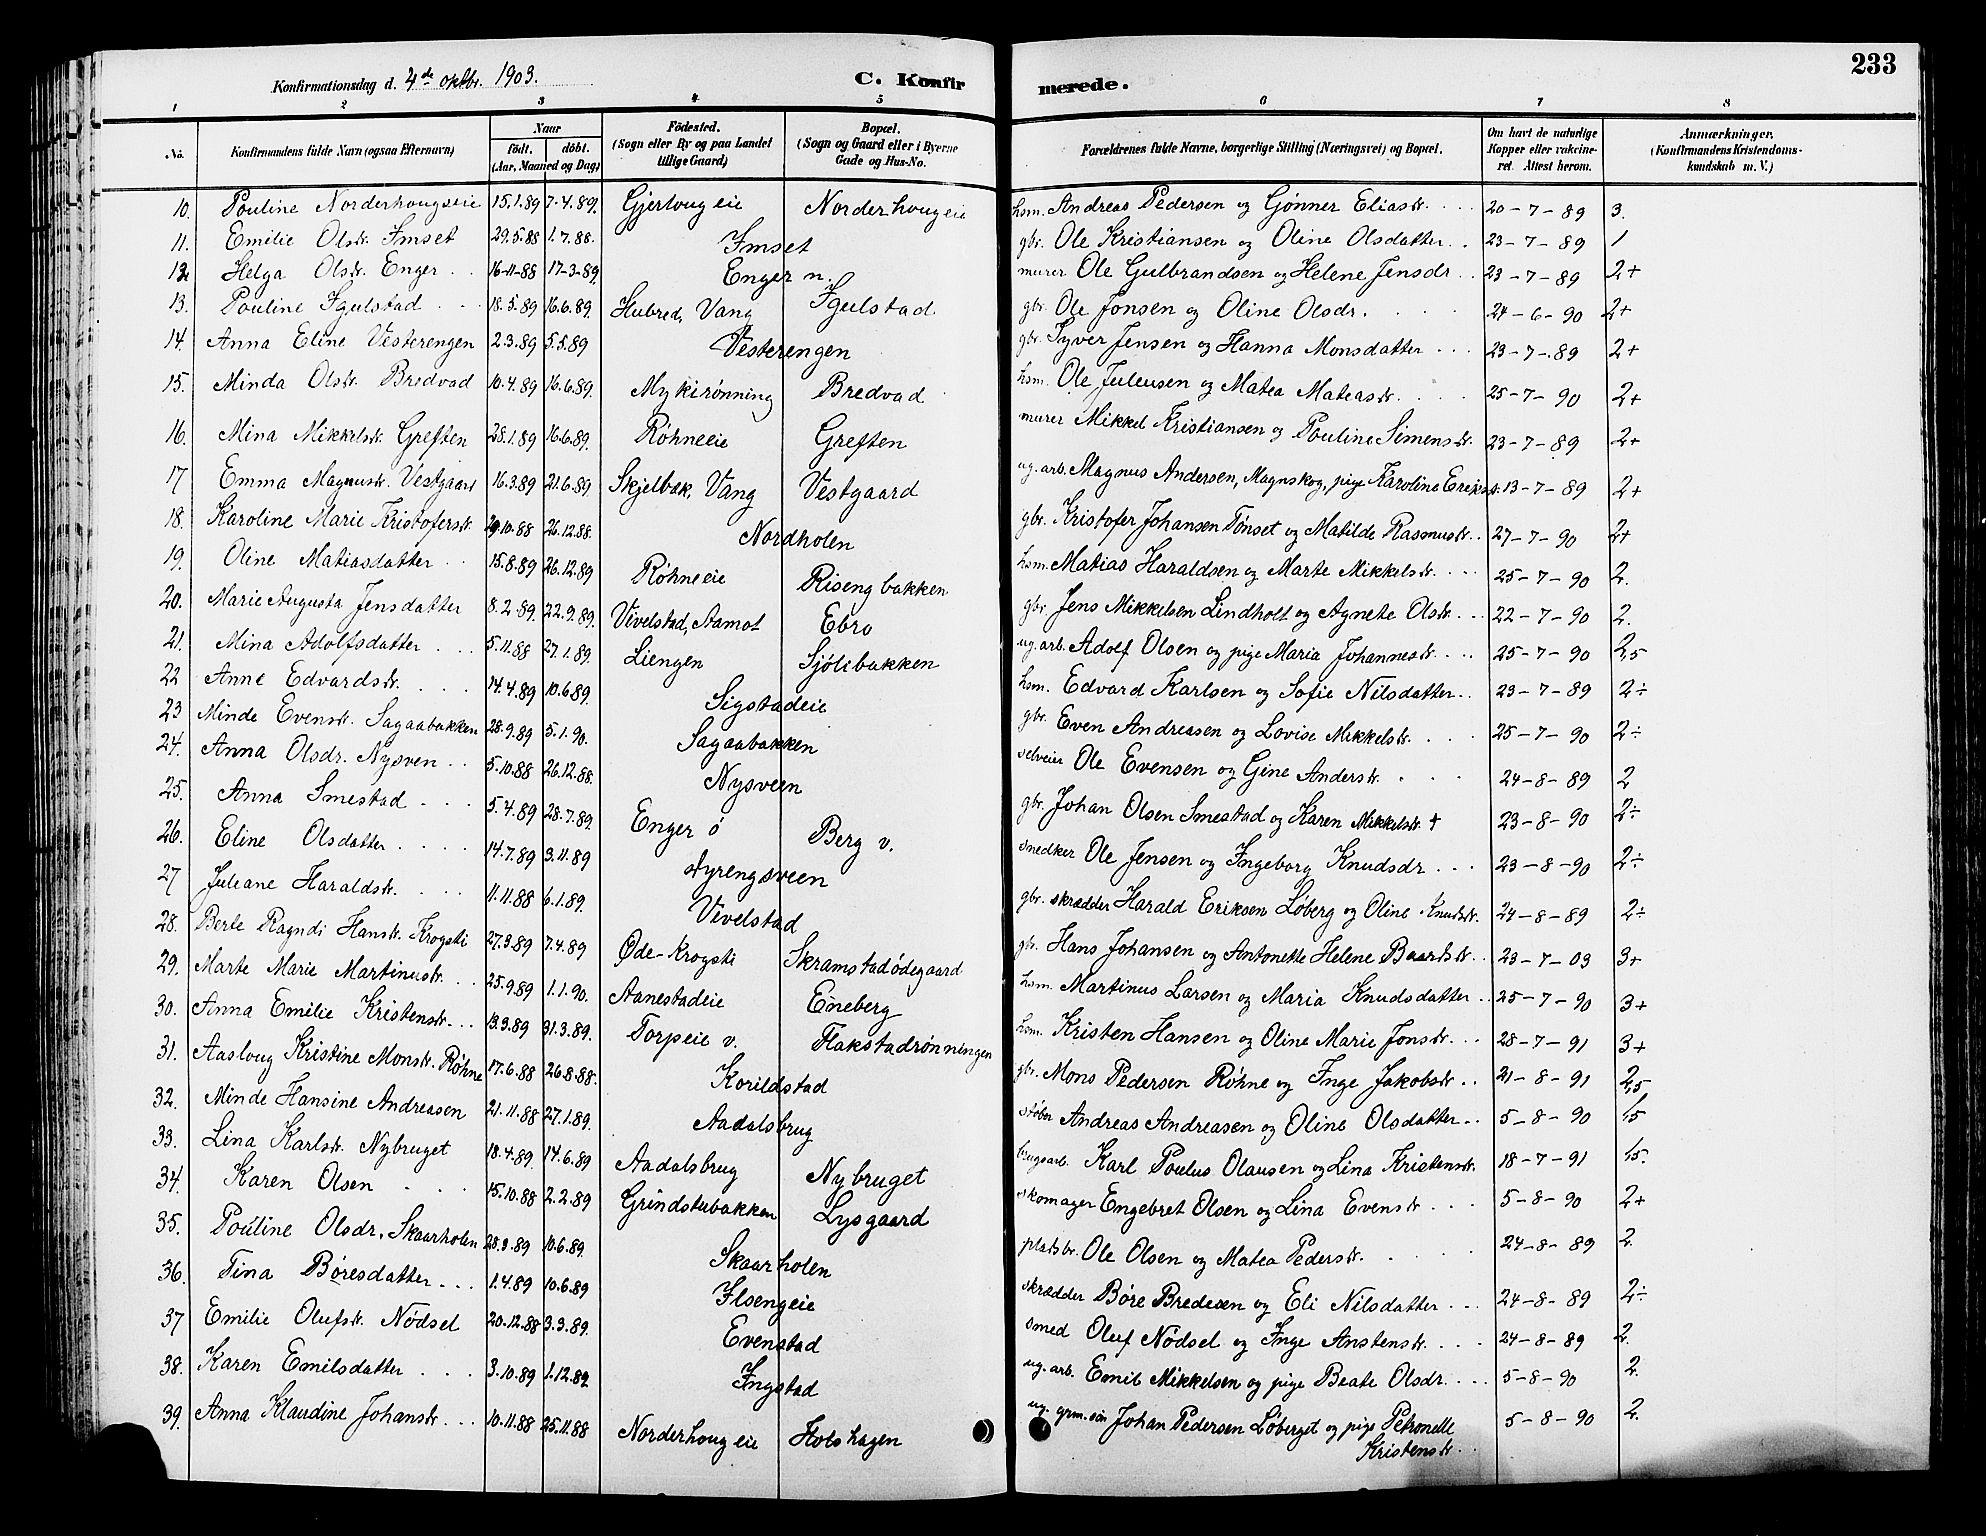 233
Konfirmationsdag d. 4de oktbr. 1903. C. Konfirmerede.
1 2 3 4 5 6 7 8
No. Konfirmandens fulde Navn (ogsaa Efternavn) Naar födt. döbt. (Aar, Maaned og Dag) Födested. (Sogn eller By og paa Landet tillige Gaard) Bopæl. (Sogn og Gaard eller i Byerne Gade og Hus-No. Forældrenes fulde Navne, borgerlige Stilling (Næringsvei) og Bopæl. Om havt de naturlige Kopper eller vakcineret. Attest herom. Anmærkninger. (Konfirmandens Kristendomskundskab m. V.)
10. Pouline Norderhougseie 15.1.89 7.4.89. Gjerlougeie Norderhougeie hsm. Andreas Pedersen og Gönner Eliasdr. 20-7-89 3.
11. Emilie Olsdr. Imset 29.5.88 1.7.88. Imset gbr. Ole Kristiansen og Oline Olsdatter 23-7-89 1
12. Helga Olsdr. Enger 16-11-88 17-3-89. Enger n. murer Ole Gulbrandsen og Helene Jensdr. 23-7-89 2+
13. Pouline Igulstad 18.5.89 16.6.89. Hubred, Vang Igulstad gbr. Ole Jonsen og Oline Olsdr. 24-6-90 2+
14. Anna Eline Vesterengen 2.3.89 5.5.89 Vesterengen gbr. Syver Jensen og Hanna Monsdatter 23-7-89 2+
15. Minda Olsdr. Bredvad 10.4.89 16.6.89. Mykirønning Bredvad hsm. Ole Juleusen og Matea Mateasdr. 25-7-90 2+
16. Mina Mikkelsdr. Greften 28.1.89 16.6.89. Röhneeie Greften murer Mikkel Kristiansen og Pouline Simensdr. 23-7-89 2+
17 Emma Magnusdr. Vestgaard 16.3.89 21.6.89. Skjelbæk, Vang Vestgaard ug. arb. Magnus Andersen, Magnskog, pige Karoline Eriksdr. 13-7-89 2+
18. Karoline Marie Kristofersdr. 29.10.88 26.12.88. Nordholen gbr. Kristofer Johansen Tönset og Matilde Rasmusdr. 27-7-90 2+
19. Oline Matiasdatter 15.8.89 26.12.89 Röhneeie Risengbakken hsm. Matias Haraldsen og Marte Mikkelsdr. 25-7-90 2.
20. Marie Augusta Jensdatter 8.2.89. 22.9.89. Vivelstad, Aamot Ebro gbr. Jens Mikkelsen Lindholt og Agnete Olsdr. 22-7-90 2.
21. Mina Adolfsdatter 5.11.88 27.1.89. Liengen Sjölibakken ug. arb. Adolf Olsen og pige Maria Johannesdr. 25-7-90 2,5
22 Anne Edvardsdr. 14.4.89 10.6.89. Sigstadeie hsm. Edvard Karlsen og Sofie Nilsdatter 23-7-89 2÷
23 Minde Evensdr. Sagaabakken 28.9.89 5.1.90. Sagaabakken gbr. Even Andreasen og Lovise Mikkelsdr. 25-7-90 2÷
24. Anna Olsdr. Nysven 5.10.88 26.12.88. Nysveen selveier Ole Evensen og Gine Andersdr. 24-8-89 2
25. Anna Smestad 5.4.89 28.7.89. Enger ö Berg v. gbr. Johan Olsen Smestad og Karen Mikkelsdr. † 23-8-90 2÷
26. Eline Olsdatter 14.7.89 3.11.89 Styrengsveen snedker Ole Jensen og Ingeborg Knudsdr 23-8-90 2÷
27 Juliane Haraldsdr. 11.11.88 6.1.89. Vivelstad gbr. skrædder Harald Eriksen Löberg og Oline Knudsdr. 24-8-89 2÷
28. Berte Ragndi Hansdr. Krogsti 27.3.89 7.4.89 Øde-Krogsti Skramstadödegaard gbr. Hans Johansen og Antonette Helene Baardsdr. 23-7-03 3+
29. Marte Marie Martinusdr. 25.9.89 1.1.90. Aanestadeie Eneberg hsm. Martinus Larsen og Maria Knudsdatter 25-7-90 3+
30. Anna Emilie Kristensdr. 13.3.89 31.3.89. Torpeie v. Flakstadrønningen hsm. Kristen Hansen og Oline Marie Jonsdr. 28-7-91 3+
31. Aasloug Kristine Monsdr. Röhne 17.6.88 26.8.88. Korildstad gbr. Mons Pedersen Röhne og Inge Jakobsdr. 21-8-91 2,5
32. Minde Hansine Andreasen 21.11.88 27.1.89. Aadalsbrug støber Andreas Andreasen og Oline Olsdatter 5-8-90 1,5
33. Lina Karlsdr. Nybruget 18.4.89. 14.6.89 Aadalsbrug Nybruget brugsarb. Karl Poulus Olausen og Lina Kristensdr. 18-7-91 1,5.
34. Karen Olsen 15.10.88 2.2.89 Grindstubakken Lysgaard skomager Engebret Olsen og Lina Evensdr. 5-8-90 2+
35. Pouline Olsdr. Skaarholen 28.3.89 10.6.89. Skaarholen pladsbr. Ole Olsen og Matea Pedersdr. 24-8-89 2.
36. Tina Børesdatter 1.4.89 10.6.89 Ilsengeie skrædder Børe Bredesen og Eli Nilsdatter 24-8-89 2÷
37 Emilie Olufsdr. Nödsel 20.12.88 3.3.89. Evenstad smed Oluf Nödsel og Inge Anstensdr. 24-8-89 2.
38. Karen Emilsdatter 3.10.89 1.12.89. Ingstad ug. arb. Emil Mikkelsen og pige Beate Olsdr. 5-8-90 2.
39. Anna Klaudine Johansdr. 10.11.88 25.11.88 Norderhougeie Holshagen ug. grm.sön Johan Pedersen Löberget og pige Petronelle 5-8-90 2.
Kristensdr.